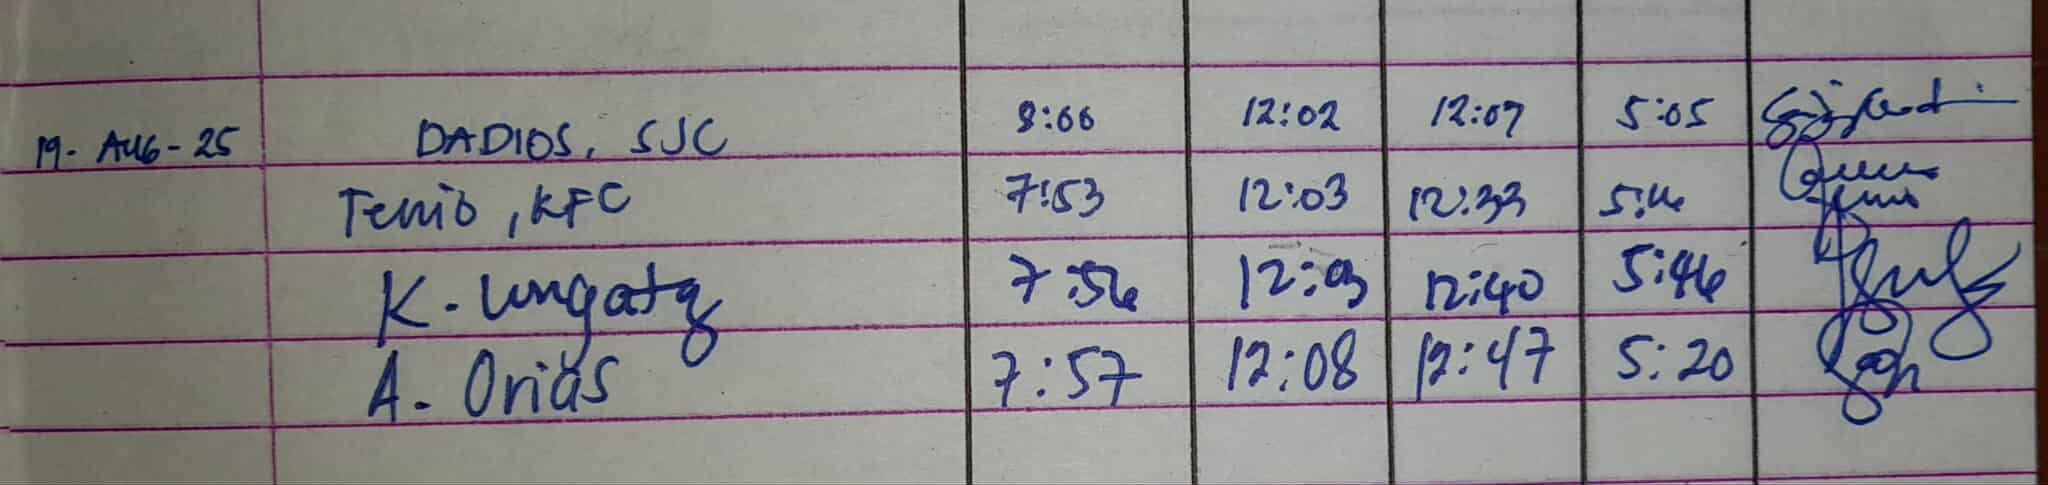 19-AUG-25 DADIOS, SJC 8:00 12:02 12:07 5:05
Tenio, KFC 7:53 12:03 12:33
K. Ungata 7:56 12:03 12:40 5:46
A. Orias 7:57 12:08 12:47 5:20